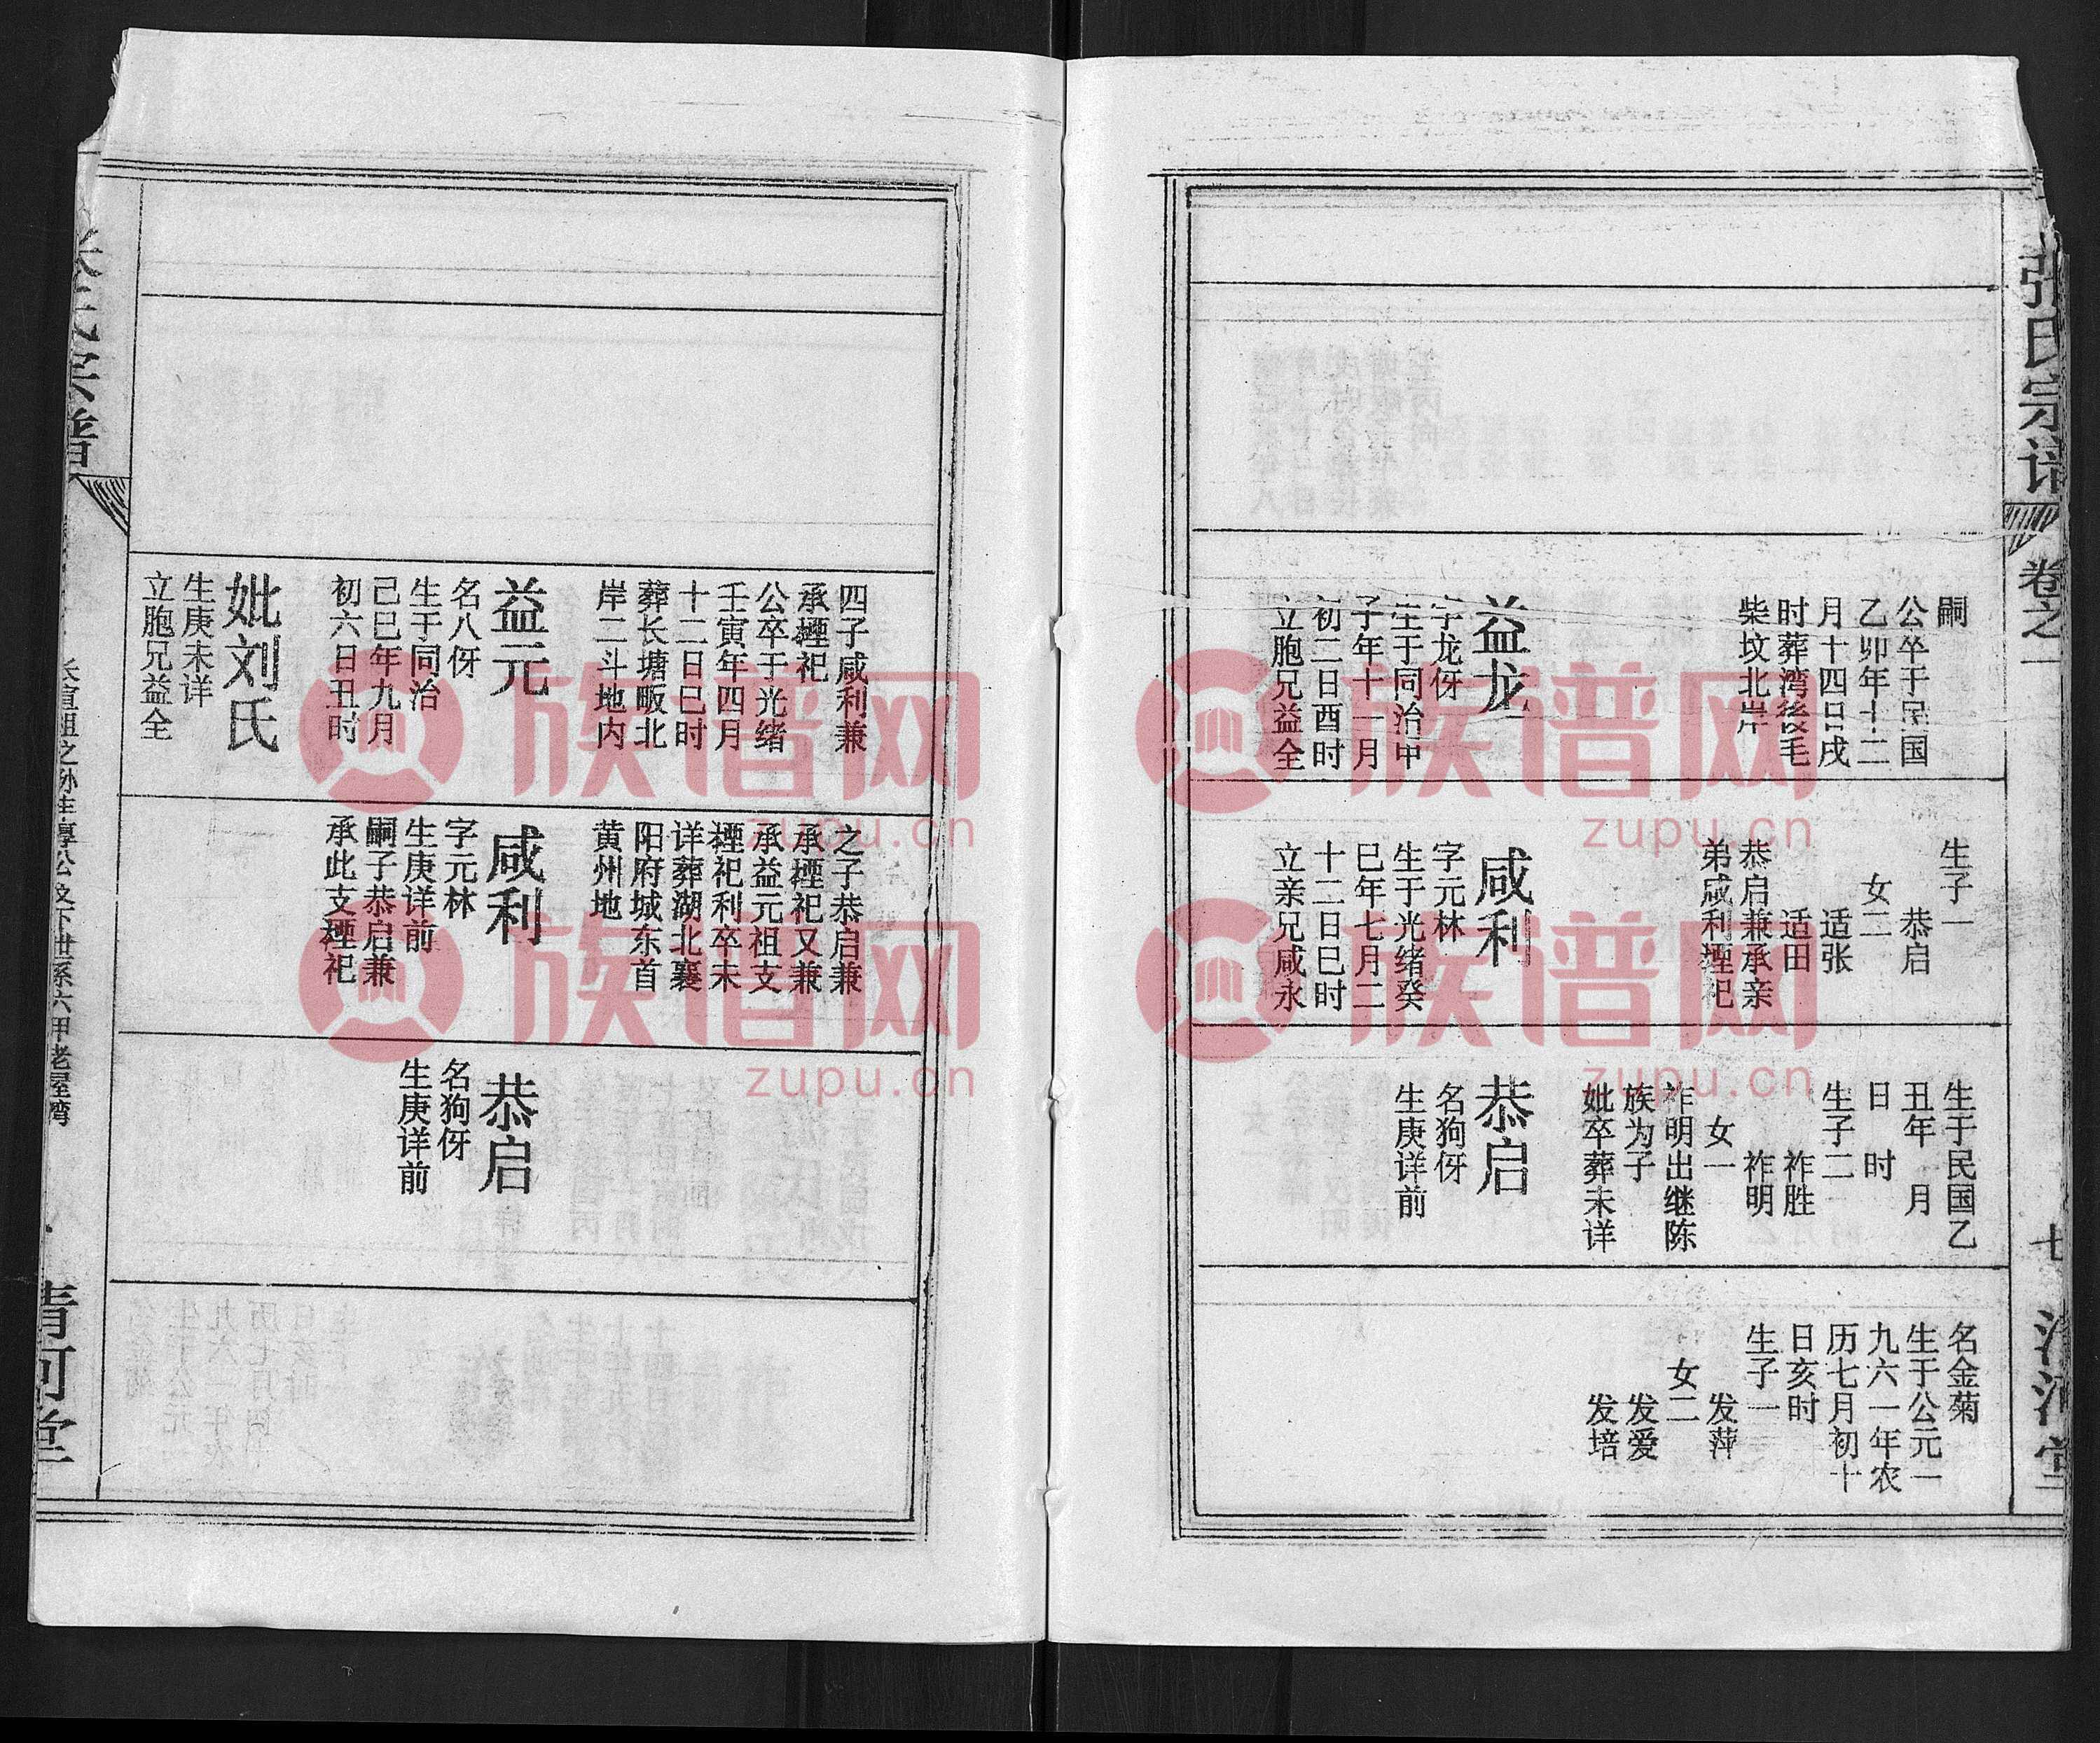 张氏宗谱
卷之一
七
清河堂
嗣
公卒于民国
乙卯年十二
月十四日戌
时葬湾後毛
柴坟北岸
益龙
字龙伢
生于同治甲
子年十一月
初二日酉时
立胞兄益全
生子一
恭启
女二
适张
适田
恭启兼承亲
弟咸利堙祀
咸利
字元林
生于光绪癸
巳年七月二
十二日巳时
立亲兄咸永
生于民国乙
丑年 月
日 时
生子二
祚胜
祚明
女一
祚明出继陈
族为子
妣卒葬未详
恭启
名狗伢
生庚详前
名金菊
生于公元一
九六一年农
历七月初十
日亥时
生子一
发萍
女二
发爱
发培
四子咸利兼
承堙祀
公卒于光绪
壬寅年四月
十二日巳时
葬长塘畈北
岸二斗地内
益元
名八伢
生于同治
己巳年九月
初六日丑时
妣刘氏
生庚未详
立胞兄益全
之子恭启兼
承堙祀又兼
承益元祖支
堙祀利卒未
详葬湖北襄
阳府城东首
黄州地
咸利
字元林
生庚详前
嗣子恭启兼
承此支堙祀
恭启
名狗伢
生庚详前
宗谱
之孙
公及下世系六甲老屋湾
清河堂
族谱网
zupu.cn
族谱网
zupu.cn
族谱网
zupu.cn
族谱网
zupu.cn